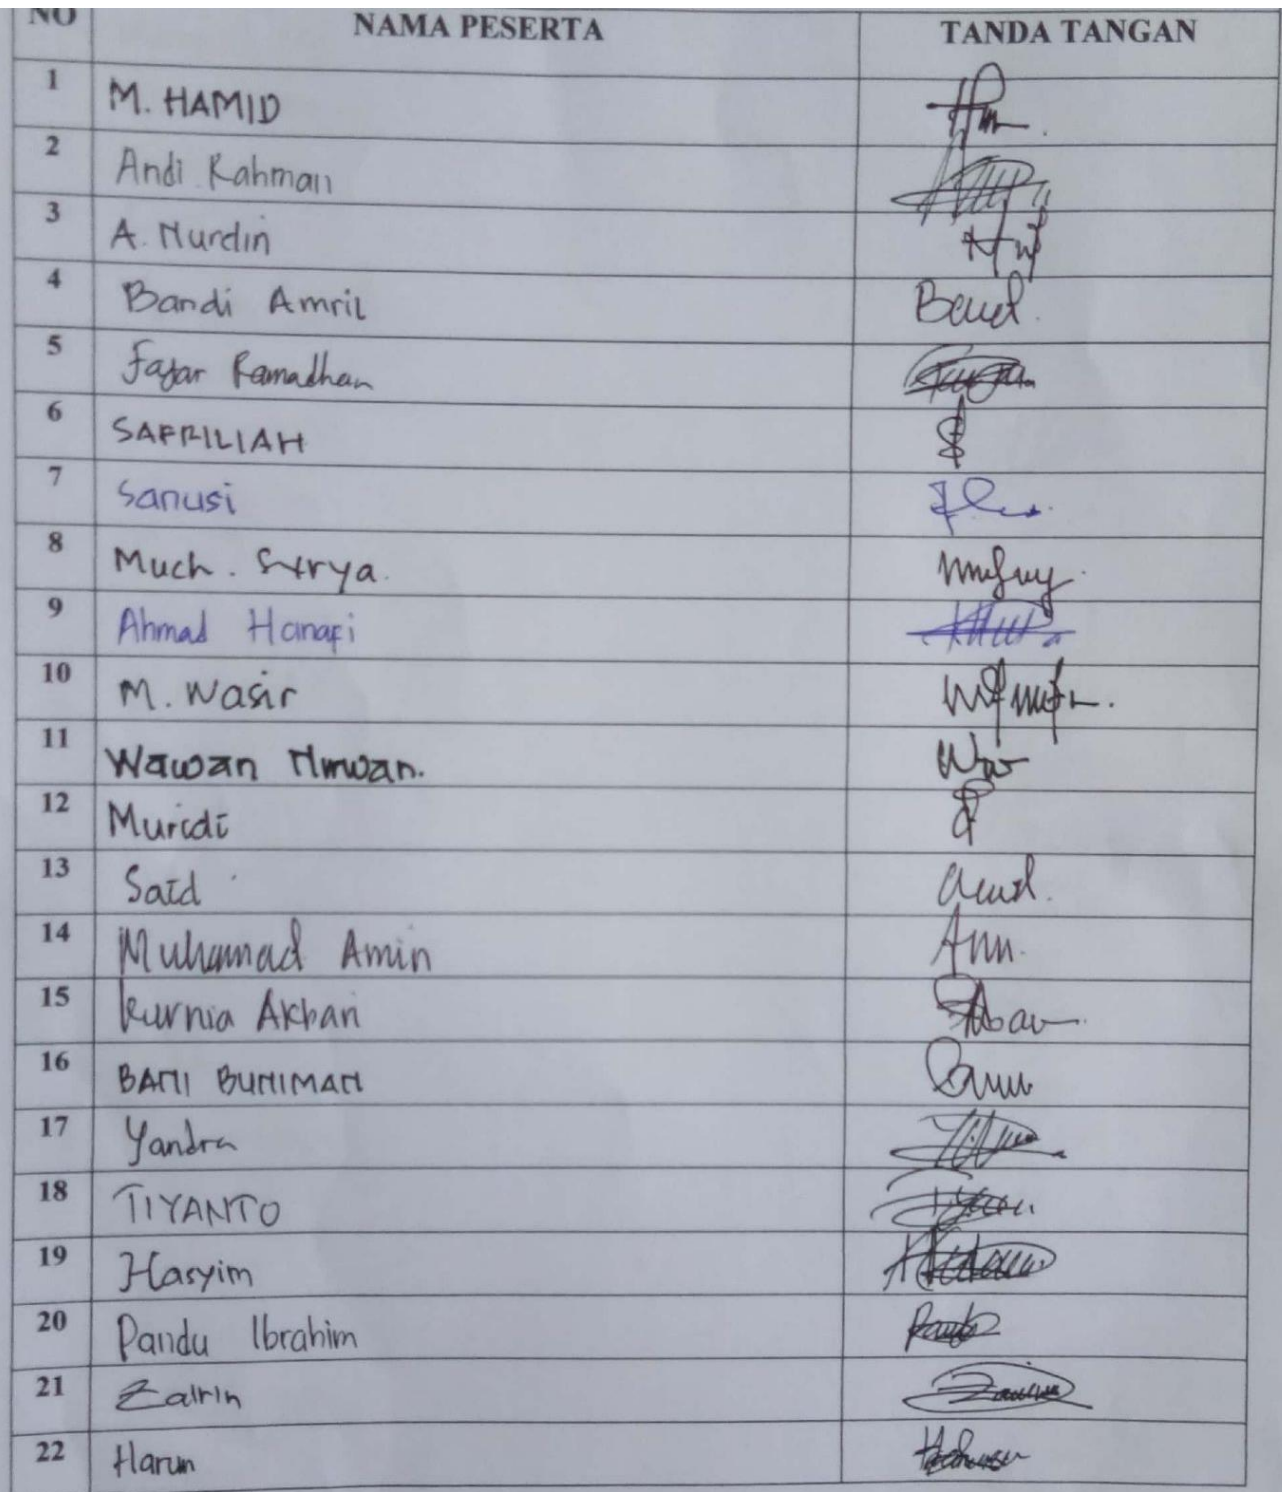 NO NAMA PESERTA TANDA TANGAN
1 M. HAMID
2 Andi Rahman
3 A. Nurdin
4 Bandi Amril
5 Fajar Ramadhan
6 SAFRILIAH
7 Sanusi
8 Much. Surya.
9 Ahmad Hanafi
10 M. Wasir
11 Wawan
12 Muridi
13 Said
14 Muhamad Amin
15 Kurnia Akbari
16 BANI BUNIMAN
17 Yandra
18 TIYANTO
19 Hasyim
20 Pandu Ibrahim
21 Zairin
22 Harun